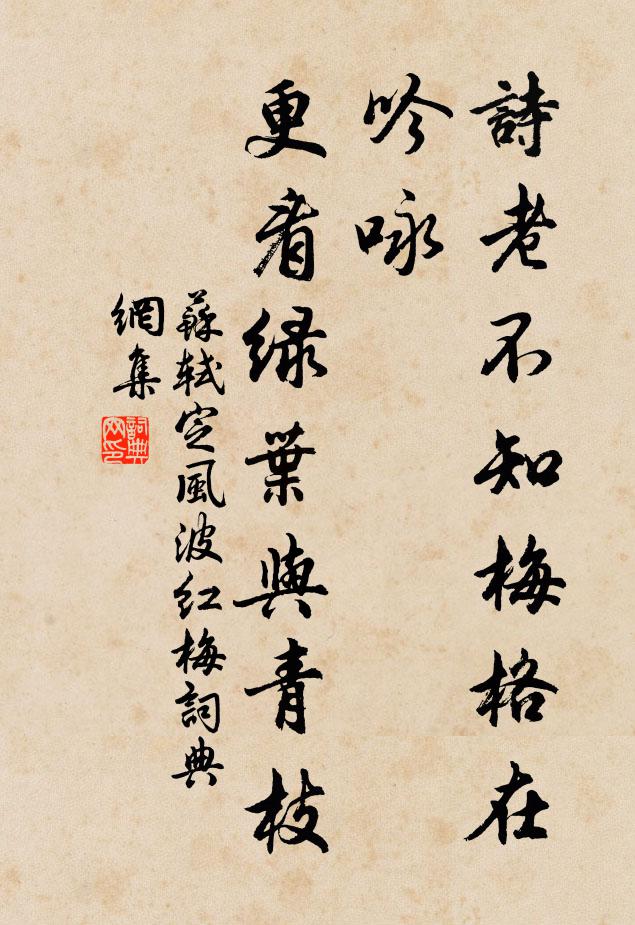 詩老不知梅格在
吟咏
更看绿葉與青枝
蘇軾定風波红梅詞典
網集
詞典網印